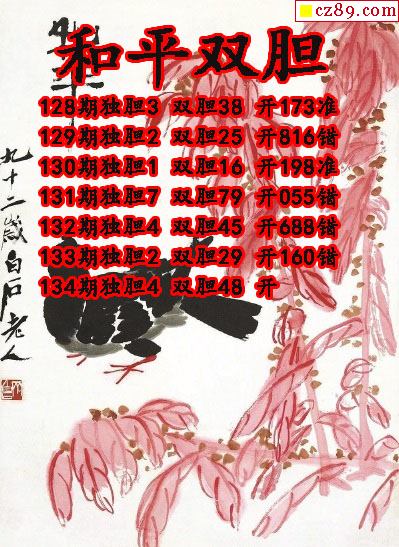 cz89.com
和平双胆
128期独胆3 双胆38 开173准
129期独胆2 双胆25 开816错
130期独胆1 双胆16 开198准
131期独胆7 双胆79 开055错
132期独胆4 双胆45 开688错
133期独胆2 双胆29 开160错
134期独胆4 双胆48 开
九十二岁白石老人